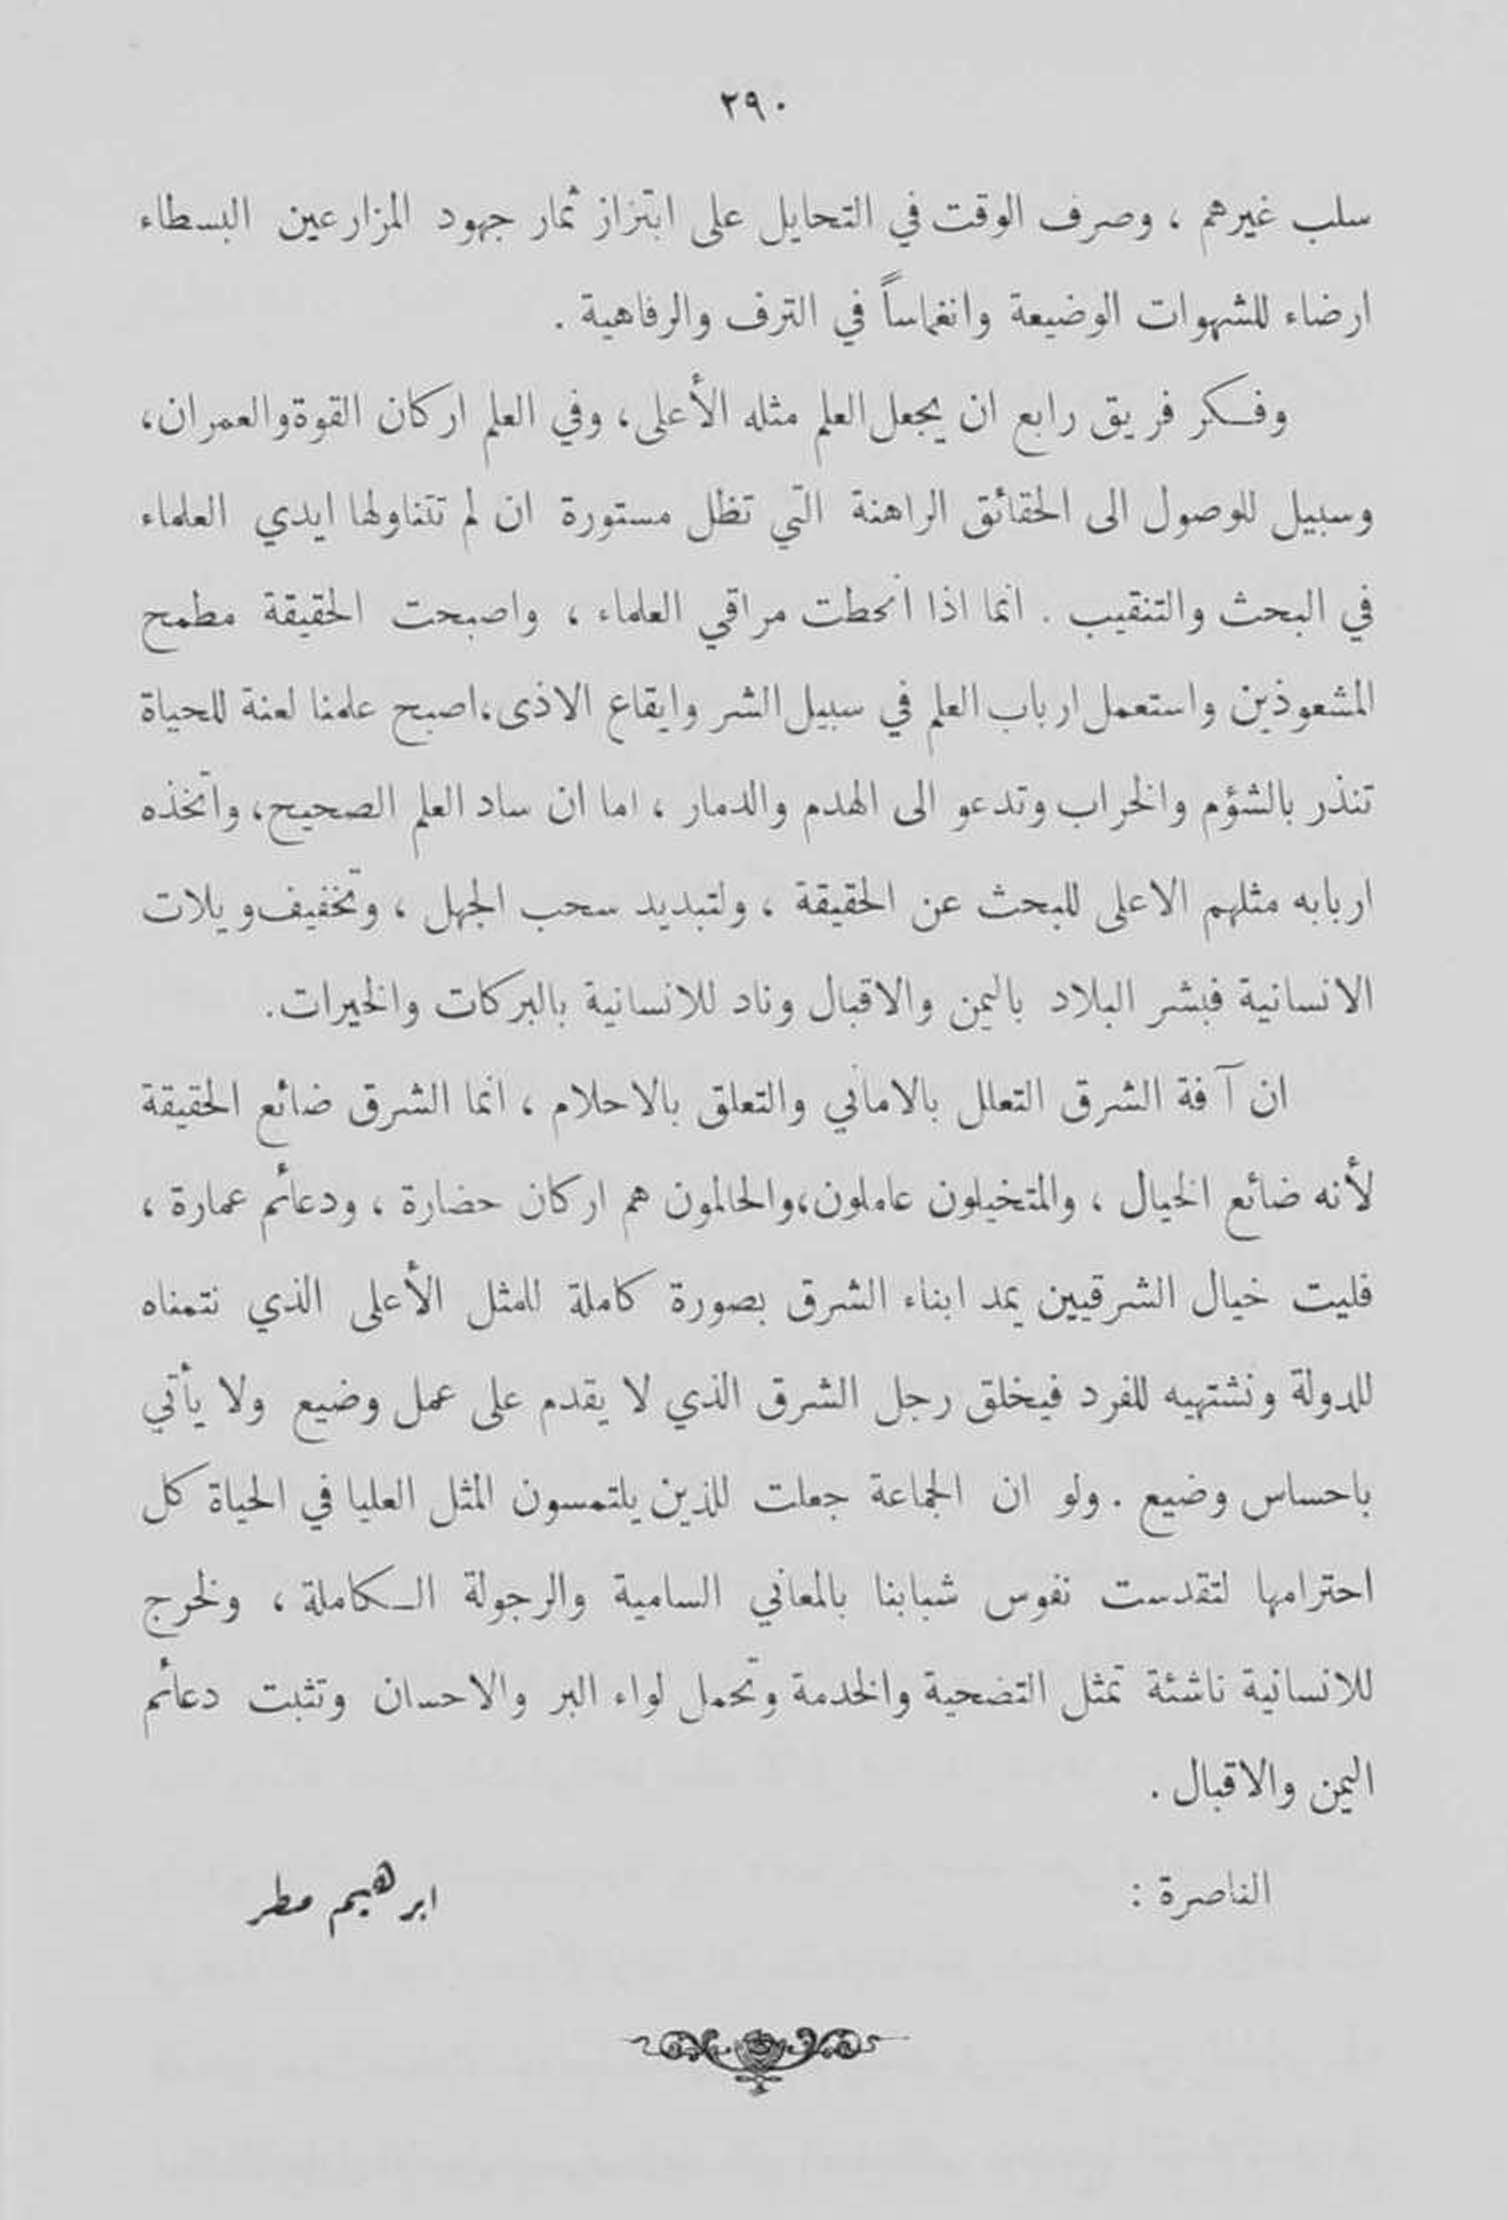 ٢٩٠
سلب غيرهم ، وصرف الوقت في التحايل على ابتزاز ثمار جهود المزارعين البسطاء
ارضاء للشهوات الوضيعة وانغماساً في الترف والرفاهية .
وفكر فريق رابع ان يجعل العلم مثله الأعلى ، وفي العلم اركان القوة والعمران ،
وسبيل للوصول الى الحقائق الراهنة التي تظل مستورة ان لم تتناولها ايدي العلماء
في البحث والتنقيب . انما اذا انحطت مراقي العلماء ، واصبحت الحقيقة مطمح
المشعوذين واستعمل ارباب العلم في سبيل الشر وايقاع الاذى ، اصبح علمنا لعنة للحياة
تنذر بالشؤم والخراب وتدعو الى الهدم والدمار ، اما ان ساد العلم الصحيح ، واتخذه
اربابه مثلهم الاعلى للبحث عن الحقيقة ، ولتبديد سحب الجهل ، وتخفيف ويلات
الانسانية فبشر البلاد باليمن والاقبال وناد للانسانية بالبركات والخيرات .
ان آفة الشرق التعلل بالاماني والتعلق بالاحلام ، انما الشرق ضائع الحقيقة
لأنه ضائع الخيال ، والمتخيلون عاملون ، والحالمون هم اركان حضارة ، ودعائم عمارة ،
فليت خيال الشرقيين يمد ابناء الشرق بصورة كاملة للمثل الأعلى الذي نتمناه
للدولة ونشتهيه للفرد فيخلق رجل الشرق الذي لا يقدم على عمل وضيع ولا يأتي
باحساس وضيع . ولو ان الجماعة جعلت للذين يلتمسون المثل العليا في الحياة كل
احترامها لتقدست نفوس شبابنا بالمعاني السامية والرجولة الكاملة ، ولخرج
للانسانية ناشئة تمثل التضحية والخدمة وتحمل لواء البر والاحسان وتثبت دعائم
اليمن والاقبال .
الناصرة : ابرهيم مطر